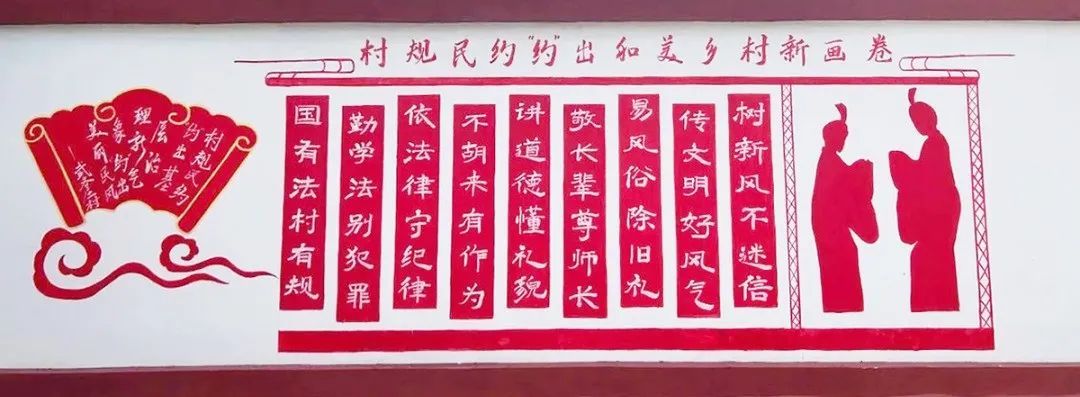 村规民约"约"出和美乡村新画卷
村规民约
"约"出基
层治
理新气
象"约"出
美丽民风
国有法村有规
勤学法别犯罪
依法律守纪律
不胡来有作为
讲道德懂礼貌
敬长辈尊师长
易风俗除旧礼
传文明好风气
树新风不迷信